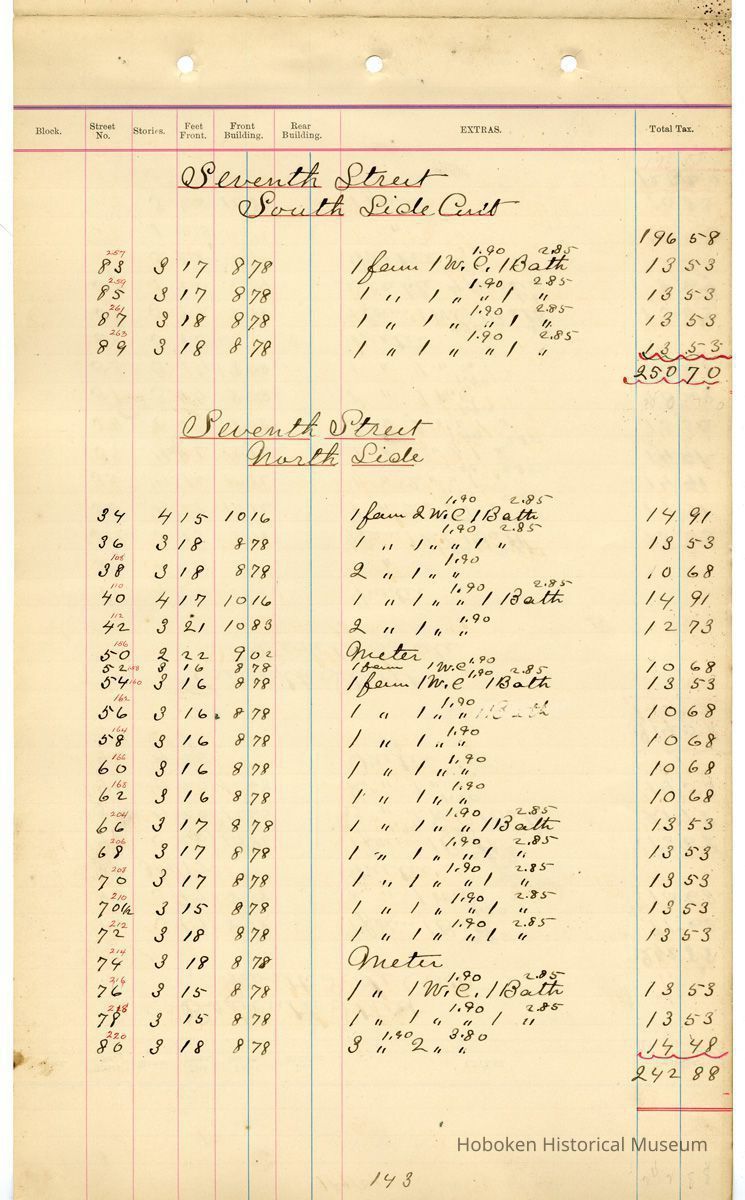 Block. Street No. Stories. Feet Front. Front Building. Rear Building. EXTRAS. Total Tax.
Seventh Street
South Side Cont
196 58
257 1.90 2.85
83 3 17 8 78 1 fam 1 W.C. 1 Bath 13 53
259 1.90 2.85
85 3 17 8 78 1 " 1 " " 1 " 13 53
261 1.90 2.85
87 3 18 8 78 1 " 1 " " 1 " 13 53
263 1.90 2.85
89 3 18 8 78 1 " 1 " " 1 " 13 53
250 70
Seventh Street
North Side
1.90 2.85
34 4 15 10 16 1 fam 2 W.C 1 Bath 14 91
1.90 2.85
36 3 18 8 78 1 " 1 " " 1 " 13 53
108 1.90
38 3 18 8 78 2 " 1 " " 10 68
110 1.90 2.85
40 4 17 10 16 1 " 1 " " 1 Bath 14 91
112 1.90
42 3 21 10 83 2 " 1 " " 12 73
156
50 2 22 9 02 Meter
158 1.90
52 3 16 8 78 1 fam 1 W.C 10 68
160 1.90 2.85
54 3 16 8 78 1 fam 1 W.C 1 Bath 13 53
162 1.90
56 3 16 8 78 1 " 1 " " 1 Bath 10 68
164 1.90
58 3 16 8 78 1 " 1 " " 10 68
166 1.90
60 3 16 8 78 1 " 1 " " 10 68
168 1.90
62 3 16 8 78 1 " 1 " " 10 68
204 1.90 2.85
66 3 17 8 78 1 " 1 " " 1 Bath 13 53
206 1.90 2.85
68 3 17 8 78 1 " 1 " " 1 " 13 53
208 1.90 2.85
70 3 17 8 78 1 " 1 " " 1 " 13 53
210 1.90 2.85
70 1/2 3 15 8 78 1 " 1 " " 1 " 13 53
212 1.90 2.85
72 3 18 8 78 1 " 1 " " 1 " 13 53
214
74 3 18 8 78 Meter
216 1.90 2.85
76 3 15 8 78 1 " 1 W.C. 1 Bath 13 53
218 1.90 2.85
78 3 15 8 78 1 " 1 " " 1 " 13 53
220 1.90 3.80
80 3 18 8 78 3 " 2 " " 14 48
242 88
Hoboken Historical Museum
143